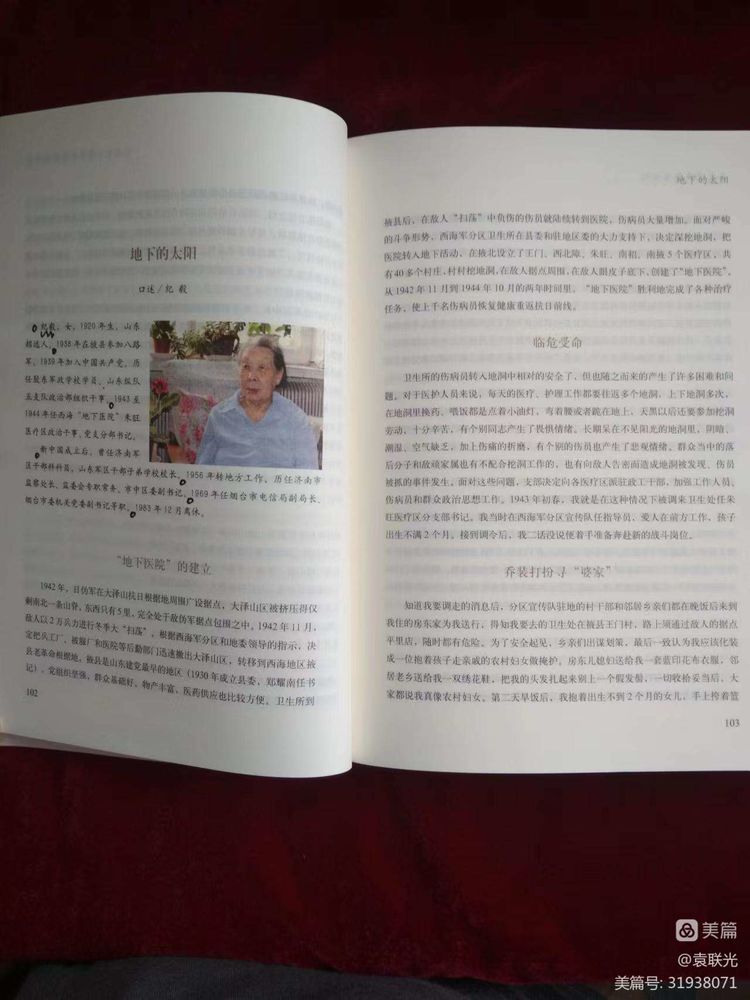 地下的太阳
口述/纪毅
纪毅，女，1920年生，山东
招远人。1938年在掖县参加八路
军，1939年加入中国共产党。历
任胶东军政学校学员、山东纵队
五支队政治部组织干事，1943至
1944年任西海“地下医院”朱旺
医疗区政治干事、党支部书记。
新中国成立后，曾任济南军
区干部科科员，山东军区干部子弟学校校长。1956年转地方工作，历任济南市
监察处长、监委会专职常务、市中区委副书记。1969年任烟台市电信局副局长、
烟台市委机关党委副书记等职。1983年12月离休。
“地下医院”的建立
1942年，日伪军在大泽山抗日根据地周围广设据点，大泽山区被挤压得仅
剩南北一条山脊，东西只有5里，完全处于敌伪军据点包围之中。1942年11月，
敌人以2万兵力进行冬季大“扫荡”，根据西海军分区和地委领导的指示，决
定把兵工厂、被服厂和医院等后勤部门迅速撤出大泽山区，转移到西海地区掖
县老革命根据地。掖县是山东建党最早的地区（1930年成立县委，郑耀南任书
记），党组织坚强、群众基础好、物产丰富、医药供应也比较方便。卫生所到
102
地下的太阳
掖县后，在敌人“扫荡”中负伤的伤员就陆续转到医院，伤病员大量增加。面对严峻
的斗争形势，西海军分区卫生所在县委和驻地区委的大力支持下，决定深挖地洞，把
医院转入地下活动，在掖北设立了王门、西北障、朱旺、南招、南掖5个医疗区，共
有40多个村庄，村村挖地洞，在敌人据点周围，在敌人眼皮子底下，创建了“地下医院”，
从1942年11月到1944年10月的两年时间里，“地下医院”胜利地完成了各种治疗
任务，使上千名伤病员恢复健康重返抗日前线。
临危受命
卫生所的伤病员转入地洞中相对的安全了，但也随之而来的产生了许多困难和问
题。对于医护人员来说，每天的医疗、护理工作都要往返多个地洞，上下地洞多次，
在地洞里换药、喂饭都是点着小油灯，弯着腰或者跪在地上，天黑以后还要参加挖洞
劳动，十分辛苦，有个别同志产生了畏惧情绪。长期呆在不见阳光的地洞里，阴暗、
潮湿、空气缺乏，加上伤痛的折磨，有个别的伤员也产生了悲观情绪。群众当中的落
后分子和敌顽家属也有不配合挖洞工作的，也有向敌人告密而造成地洞被发现、伤员
被抓的事件发生。面对这些问题，支部决定向各医疗区派驻政工干部，加强工作人员、
伤病员和群众政治思想工作。1943年初春，我就是在这种情况下被调来卫生处任朱
旺医疗区分支部书记。我当时在西海军分区宣传队任指导员，爱人在前方工作，孩子
出生不满2个月。接到调令后，我二话没说便着手准备奔赴新的战斗岗位。
乔装打扮寻“婆家”
知道我要调走的消息后，分区宣传队驻地的村干部和邻居乡亲们都在晚饭后来到
我住的房东家为我送行，得知我要去的卫生处在掖县王门村，路上须通过敌人的据点
平里店，随时都有危险。为了安全起见，乡亲们出谋划策，最后一致认为我应该化装
成一位抱着孩子走亲戚的农村妇女做掩护。房东儿媳妇送给我一套蓝印花布衣服，邻
居老乡送给我一双绣花鞋，把我的头发扎起来别上一个假发髻，一切收拾妥当后，大
家都说我真像农村妇女。第二天早饭后，我抱着出生不到2个月的女儿，手上挎着篮
103
美篇
@袁联光
美篇号: 31938071